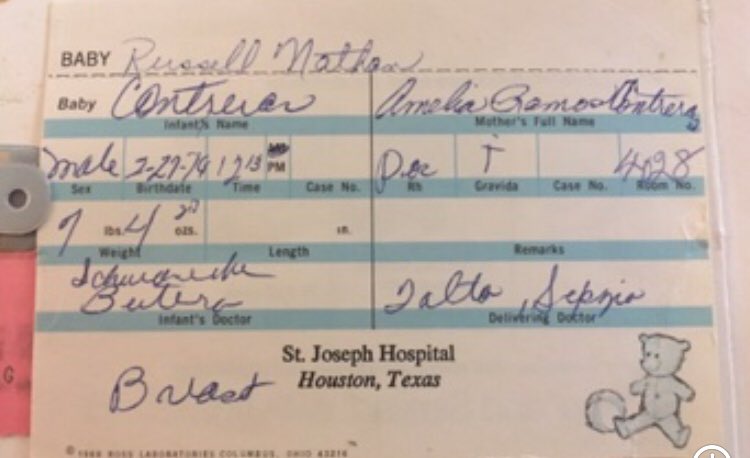 BABY Russell Nathan
Baby Contreras Amelia Ramos Contreras
Infant's Name Mother's Full Name
Male 2-27-74 12 13 PM Pos i 4028
Sex Birthdate Time Case No. Rh Gravida Case No. Room No.
7 lbs. 4 ozs. in.
Weight Length Remarks
Infant's Doctor Delivering Doctor
St. Joseph Hospital
Houston, Texas
Breast
© ROSS LABORATORIES COLUMBUS, OHIO 43216